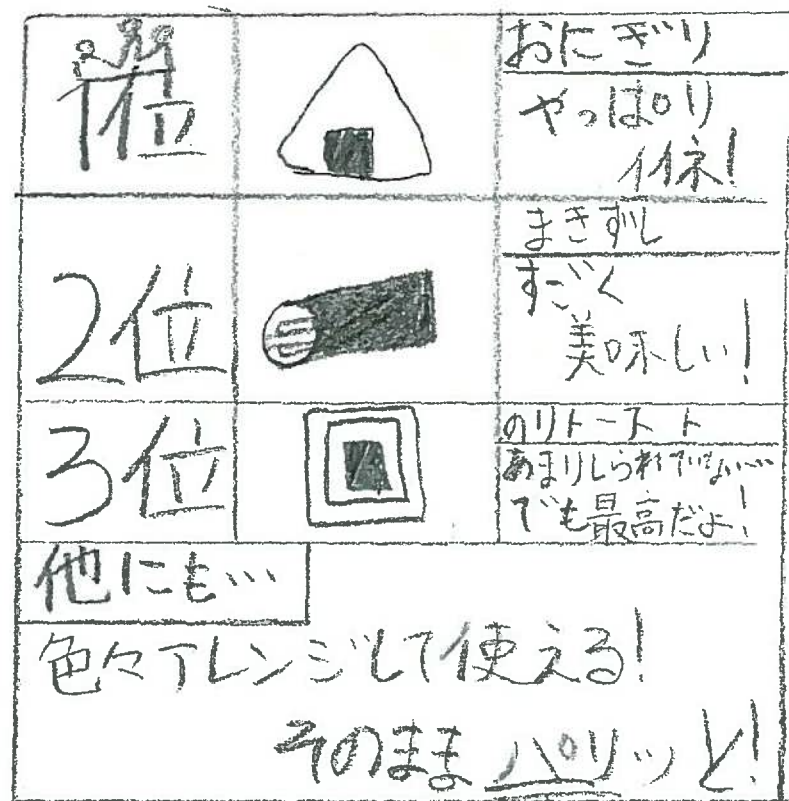 1位
おにぎり
やっぱり
イイネ!
2位
まきずし
すごく
美味しい!
3位
のりトースト
あまりしられていない…
でも最高だよ!
他にも…
色々アレンジして使える!
そのままパリッと!